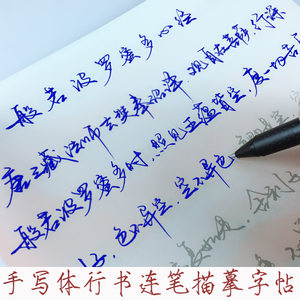 般若波罗蜜多心经
唐三藏法师玄奘奉诏译 观自在菩萨行深
般若波罗蜜多时，照见五蕴皆空，度一切苦
色不异空，空不异色
手写体行书连笔描摹字帖